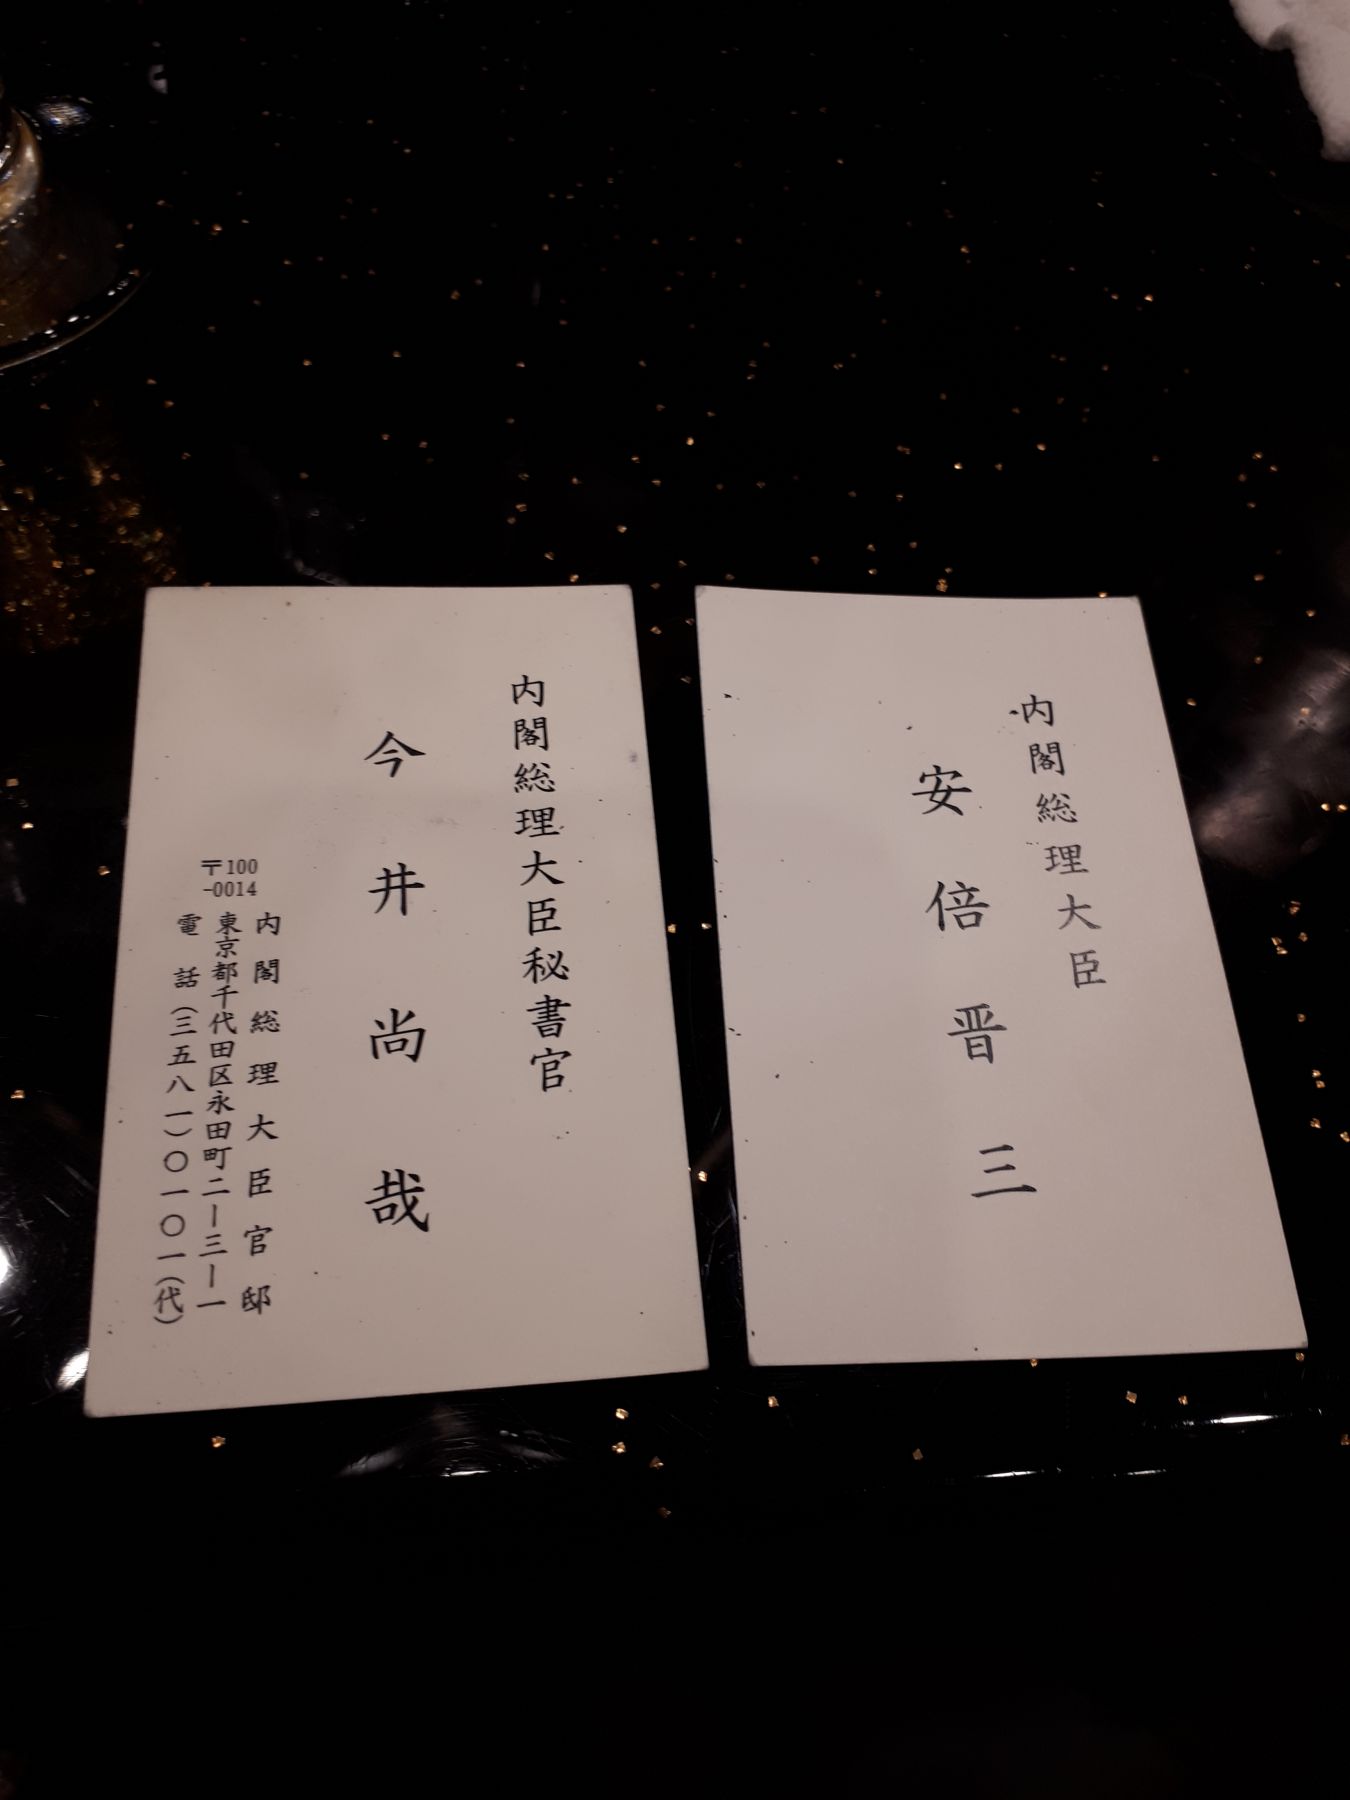 内閣総理大臣
安倍晋三
内閣総理大臣秘書官
今井尚哉
内閣総理大臣官邸
〒100
-0014
東京都千代田区永田町二ー三ー一
電話(三五八一)〇一〇一(代)